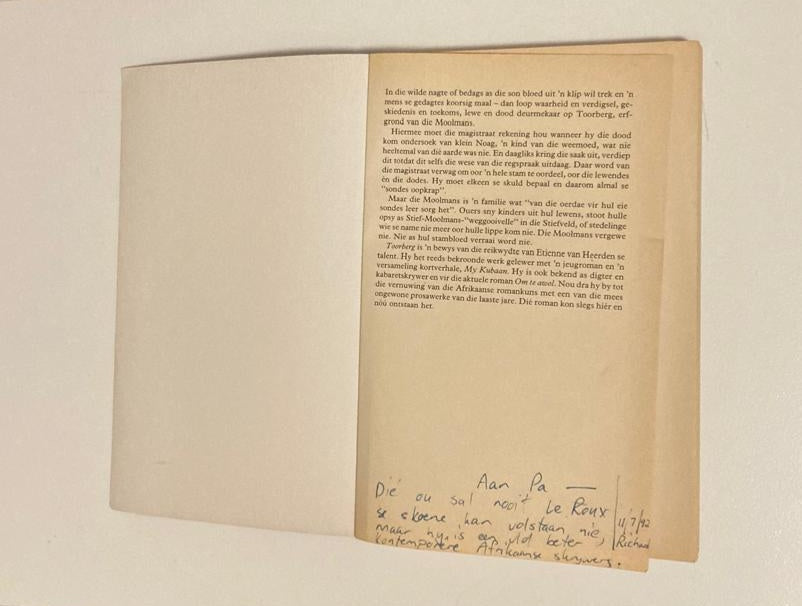 In die wilde nagte of bedags as die son bloed uit 'n klip wil trek en 'n
mens se gedagtes koorsig maal – dan loop waarheid en verdigsel, ge-
skiedenis en toekoms, lewe en dood deurmekaar op Toorberg, erf-
grond van die Moolmans.
Hiermee moet die magistraat rekening hou wanneer hy die dood
kom ondersoek van klein Noag, 'n kind van die weemoed, wat nie
heeltemal van dié aarde was nie. En daagliks kring die saak uit, verdiep
dit totdat dit selfs die wese van die regspraak uitdaag. Daar word van
die magistraat verwag om oor 'n hele stam te oordeel, oor die lewendes
én die dodes. Hy moet elkeen se skuld bepaal en daarom almal se
"sondes oopkrap".
Maar die Moolmans is 'n familie wat "van die oerdae vir hul eie
sondes leer sorg het". Ouers sny kinders uit hul lewens, stoot hulle
opsy as Stief-Moolmans-"weggooivelle" in die Stiefveld, of stedelinge
wie se name nie meer oor hulle lippe kom nie. Die Moolmans vergewe
nie. Nie as hul stambloed verraai word nie.
Toorberg is 'n bewys van die reikwydte van Etienne van Heerden se
talent. Hy het reeds bekroonde werk gelewer met 'n jeugroman en 'n
versameling kortverhale, My Kubaan. Hy is ook bekend as digter en
kabaretskrywer en vir die aktuele roman Om te awol. Nou dra hy by tot
die vernuwing van die Afrikaanse romankuns met een van die mees
ongewone prosawerke van die laaste jare. Dié roman kon slegs hiér en
nóú ontstaan het.
Aan Pa —
Dié ou sal nooit Le Roux
se skoene kan volstaan nie,
maar hy is een vd beter
kontemporêre Afrikaanse skrywers.
11/7/92
Richard